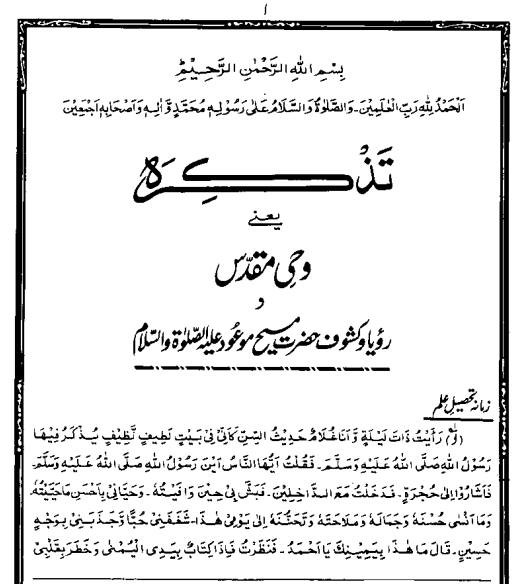 ا
بِسْمِ اللهِ الرَّحْمٰنِ الرَّحِيْمِ
اَلْحَمْدُ لِلّٰهِ رَبِّ الْعٰلَمِيْنَ۔ وَالصَّلٰوةُ وَالسَّلَامُ عَلٰى رَسُوْلِهٖ مُحَمَّدٍ وَّاٰلِهٖ وَاَصْحَابِهٖ اَجْمَعِيْنَ
تَذْكِرَہ
یعنی
وحیِ مقدّس
و
رؤیا و کشوف حضرت مسیح موعُود علیہ الصّلوٰۃ والسّلام
زمانہ تحصیلِ علم
رَأَيْتُ ذَاتَ لَيْلَةٍ وَّ اَنَا غُلَامٌ حَدِيْثُ السِّنِّ كَاَنِّيْ فِيْ بَيْتٍ لَطِيْفٍ نَّظِيْفٍ يُذْكَرُ فِيْهَا
رَسُوْلُ اللهِ صَلَّى اللهُ عَلَيْهِ وَسَلَّمَ۔ فَقُلْتُ اَيُّهَا النَّاسُ اَيْنَ رَسُوْلُ اللهِ صَلَّى اللهُ عَلَيْهِ وَسَلَّمَ۔
فَاَشَارُوْا اِلٰى حُجْرَةٍ۔ فَدَخَلْتُ مَعَ الدَّاخِلِيْنَ۔ فَبَشَّ بِيْ حِيْنَ وَافَيْتُهٗ۔ وَحَيَّانِيْ بِاَحْسَنِ مَا حَيَّيْتُهٗ۔
وَمَا اَنْسٰى حُسْنَهٗ وَجَمَالَهٗ وَمَلَاحَتَهٗ وَتَحَنُّنَهٗ اِلٰى يَوْمِيْ هٰذَا۔ شَغَفَنِيْ حُبًّا وَّجَذَبَنِيْ بِوَجْهٍ
حَسِيْنٍ۔ قَالَ مَا هٰذَا بِيَمِيْنِكَ يَا اَحْمَدُ۔ فَنَظَرْتُ فَاِذَا كِتَابٌ بِيَدِي الْيُمْنٰى وَخَطَرَ بِقَلْبِيْ